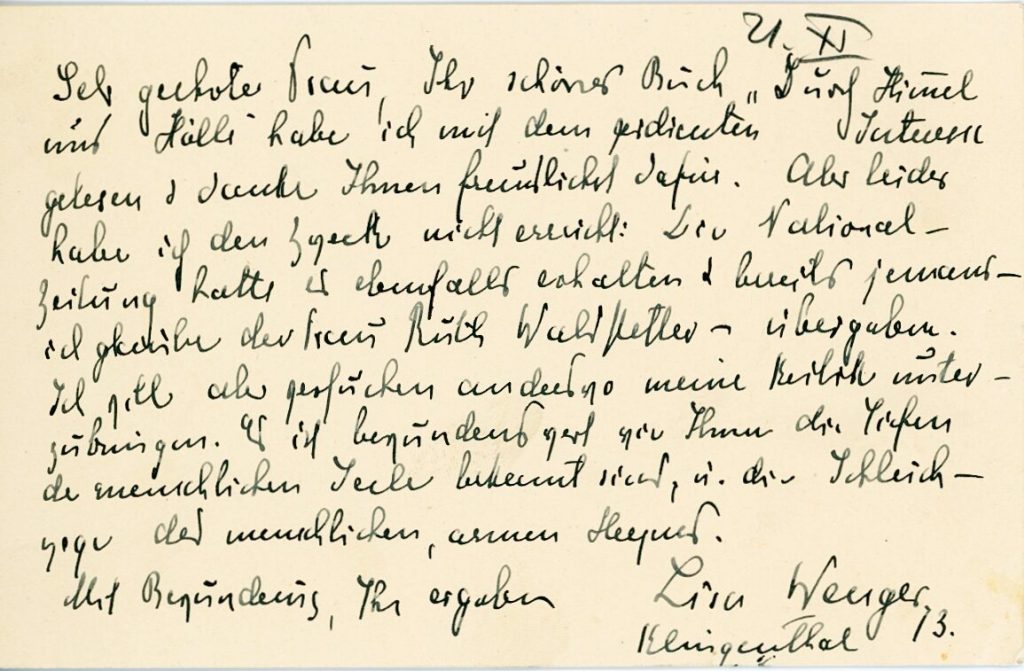 21. XI
Sehr geehrte Frau, Ihr schönes Buch „Durch Himmel
und Hölle" habe ich mit dem verdienten Interesse
gelesen & danke Ihnen freundlichst dafür. Aber leider
habe ich den Zweck nicht erreicht: Die National-
Zeitung hatte es ebenfalls erhalten & bereits jemand-
ich glaube der Frau Ruth Waldstetter - übergeben.
Ich will aber versuchen anderswo meine Kritik unter-
zubringen. Es ist bewundernswert wie Ihnen die Tiefen
der menschlichen Seele bekannt sind, u. die Schleich-
wege des menschlichen, armen Herzens.
Mit Bewunderung, Ihre ergebene
Lisa Wenger
Klingenthal 13.